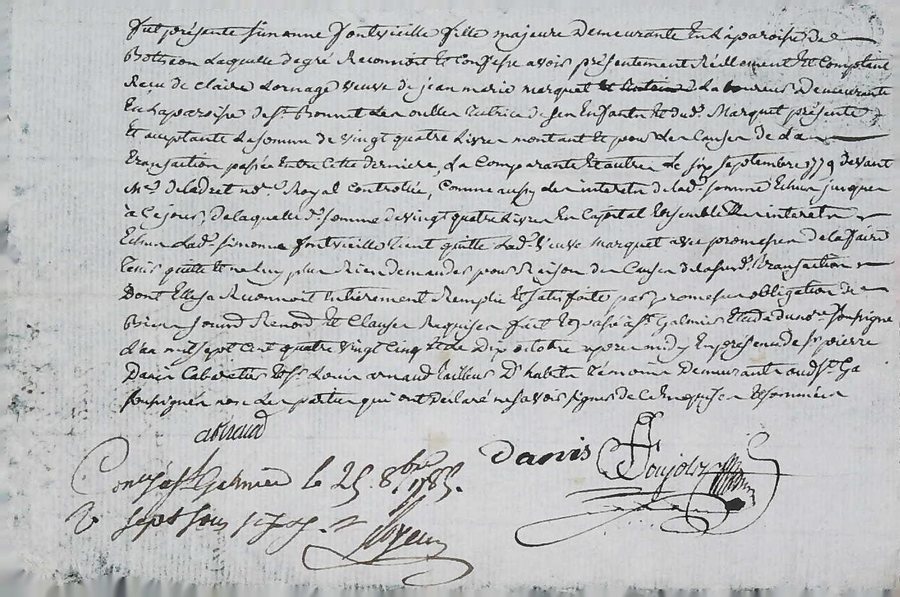 fut présente Simonne fontvieille fille majeure Demeurante En La paroisse de
Laquelle de gré Reconnoit Et Confesse avoir présentement Réellement Et Comptant
Reçu de Claire Lornage veuve de jean marie marquet Laboureur Demeurante
En La paroisse de St. Bonnet Les oulles tutrice de ses Enfants Et dud. Marquet présente
Et acceptante La somme de vingt quatre Livres montant Et pour Les Causes de La
transaction passée Entre Cette derniere, La Comparante Et autres Le six septembre 1779 devant
Me. deladret nre. Royal Controllée, Comme aussy Les interets de lad. somme Echus jusques
à Ce jour, de laquelle d. somme de vingt quatre Livres En Capital Ensemble Les interets
Echus Lad. Simonne fontvieille tient quitte Lad. veuve marquet avec promesses de la faire
tenir quitte Et ne luy plus Rien demander pour Raison des Causes de la susd. transaction
Dont Elle sa Reconnoit Entièrement Remplie Et satisfaite par promesses obligation de
Biens soumd. Renond. Et Clauses Requises fait Et passé à St. Galmier Etude du nre. soussigné
L'an mil sept Cent quatre vingt Cinq Et Le Dix octobre après midy En présence de Sr. pierre
Danis Cabaretier Et Sr. Louis arnaud tailleur D'habits témoins Demeurants aud. St. Ga
soussignés non Les parties qui ont déclaré ne savoir signer de Ce Requises Et sommées
arnaud
danis
Soujolz
Con. à St. Galmier le 25. 8bre. 1785.
R sept sous